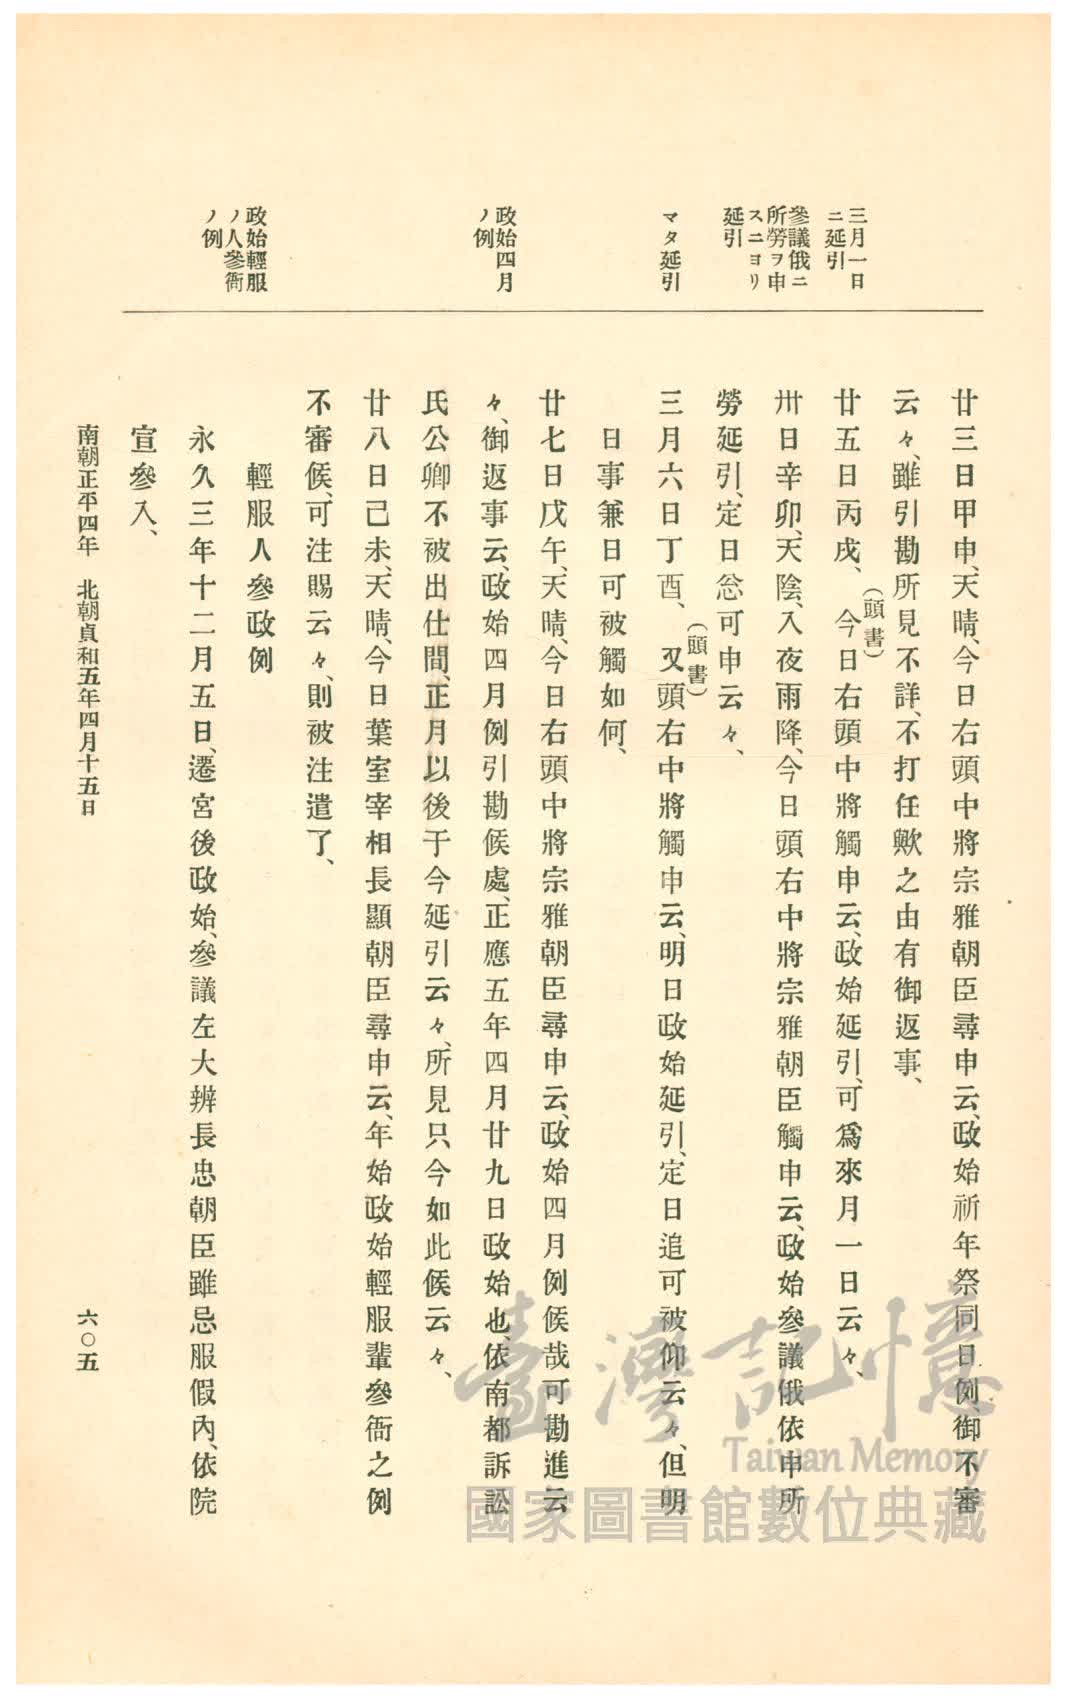 三月一日
ニ延引
參議俄ニ
所勞ヲ申
スニヨリ
延引
マタ延引
政始四月
ノ例
政始輕服
ノ人參衙
ノ例
廿三日甲申、天晴、今日右頭中將宗雅朝臣尋申云、政始祈年祭同日例、御不審
云々、雖引勘所見不詳、不打任歟之由有御返事、
(頭書)
廿五日丙戌、今日右頭中將觸申云、政始延引、可爲來月一日云々、
卅日辛卯、天陰、入夜雨降、今日頭右中將宗雅朝臣觸申云、政始參議俄依申所
勞延引、定日忩可申云々、
(頭書)
三月六日丁酉、又頭右中將觸申云、明日政始延引、定日追可被仰云々、但明
日事兼日可被觸如何、
廿七日戊午、天晴、今日右頭中將宗雅朝臣尋申云、政始四月例候哉可勘進云
々、御返事云、政始四月例引勘候處、正應五年四月廿九日政始也、依南都訴訟
氏公卿不被出仕間、正月以後于今延引云々、所見只今如此候云々、
廿八日己未、天晴、今日葉室宰相長顯朝臣尋申云、年始政始輕服輩參衙之例
不審候、可注賜云々、則被注遣了、
輕服人參政例
永久三年十二月五日、遷宮後政始、參議左大辨長忠朝臣雖忌服假內、依院
宣參入、
南朝正平四年 北朝貞和五年四月十五日
六〇五
臺灣記憶
Taiwan Memory
國家圖書館數位典藏